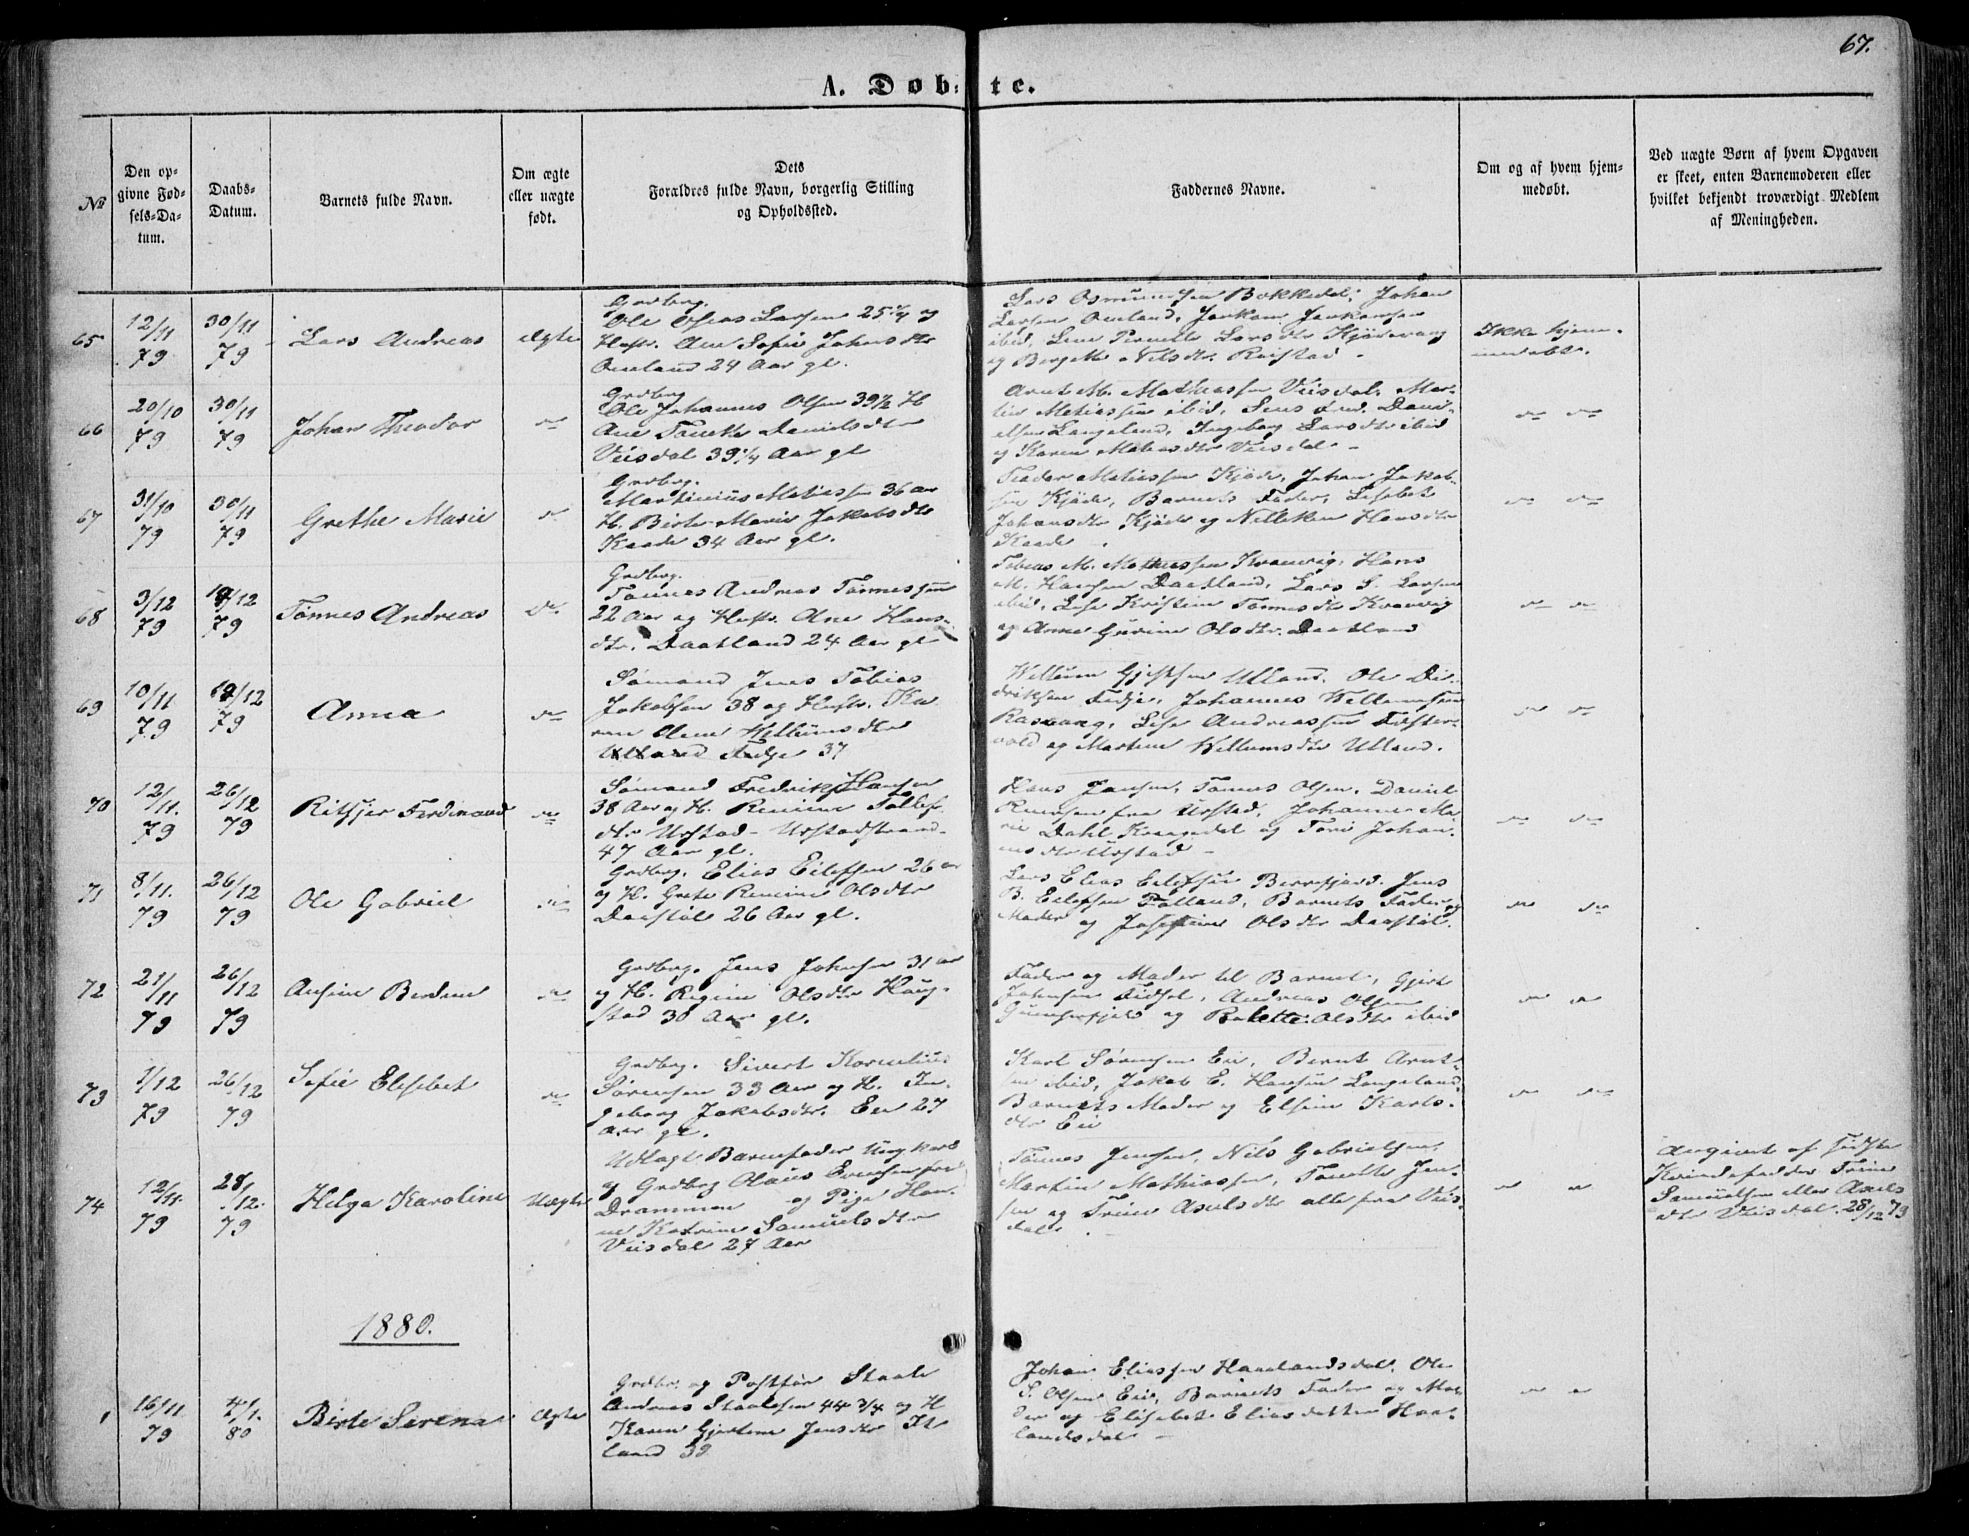 67.
A. Døb-te.
No
Den op-
givne Fød-
sels-Da-
tum.
Daabs-
Datum.
Barnets fulde Navn.
Om ægte
eller uægte
født.
Dets
Forældres fulde Navn, borgerlig Stilling
og Opholdssted.
Faddernes Navne.
Om og af hvem hjem-
medøbt.
Ved uægte Børn af hvem Opgaven
er skeet, enten Barnemoderen eller
hvilket bekjendt troværdigt Medlem
af Meningheden.
65
12/11 79
30/11 79
Lars Andreas
Ægte
Grdbrg.
Ole Larsen 25 1/4 og
Hustr. Ane Sofie Johnsdtr
Omland 24 Aar gl.
Lars Osmundsen Bokkedal, Johan
Larsen Omland,
ibid, Lene Pernille Larsdtr
og Bergitte Nilsdtr. Reistad
Ikke hjem-
medøbt.
66
20/10 79
30/11 79
Johan Theodor
do
Grdbrg
Ole Johannes Olsen 39 1/2 H
Ane Tonette Danielsdtr
Veisdal 39 1/4 Aar gl
Arnt M. Mathiassen Veisdal, Mar-
tin Matiassen ibid, Jens Fred. Dani-
elsen Langeland, Ingeborg Larsdtr ibid
og Karen Veisdal
do do
67
31/10 79
30/11 79
Grethe Marie
do
Grdbrg.
Martinius Matiassen 36 aar
H. Birte Marie Jakobsdtr
Kaade 34 Aar gl.
Teodor Matiassen Kjøde, Johan Jakob-
sen Kjøde, Barnets Fader, Lisebet
Johansdtr Kjøde og Nilleken Hansdtr
Kaade
do do
68
3/12 79
19/12 79
Tønnes Andreas
do
Grdbrg.
Tønnes Andreas Tønnessen
22 Aar og Hustr. Ane Hans-
dtr. Daatland 24 Aar gl
Tobias M. Mathiassen Kvanvig, Hans
M. Hansen Daatland, Lars S. Larsen
ibid, Lise Kristine Tønnesdtr Kvanvig
og Anne Gurine Olsdtr. Daatland
do do
69
10/11 79
19/12 79
Anna
do
Sømand Jens Tobias
Jakobsen 38 og Hustr. Ka-
ren Oline Willumsdtr
Ulland Fedje 37
Willum Ulland, Ole Di-
driksen Fedje, Johannes Willumsen
Rasvaag, Lise Andreassen
og Martine Willumsdtr Ulland.
do do
70
12/11. 79
26/12 79
Ferdinand
do
Sømand Fredrik Hansen
38 Aar og H.
dtr Urstad - Urstadstrand
47 Aar gl.
Hans Hansen, Tønnes Olsen, Daniel
fra Urstad, Johanne Ma-
rie Dahl og Tori Johan-
nesdtr Urstad
do do
71
8/11. 79
26/12 79
Ole Gabriel
do
Grdbrg. Elias Eilefsen 26 aar
og H. Grete Olsdtr
Daastøl 26 Aar gl.
Lars Elias Eilefsen Berrefjord, Jens
B. Eilefsen Følland, Barnets Fader og
Moder og Josefine Olsdtr Daastøl.
do do
72
21/11 79
26/12 79
Ansine Berdine
do
Grdbrg. Jens Johnsen 31 aar
og H. Regine Olsdtr Haug-
stad 30 Aar gl.
Fader og Moder til Barnet, Gjert
Johnsen, Andreas Olsen
og Bolette Olsdtr ibid
do do
73
1/12 79
26/12 79
Sofie Elisebet
do
Grdbrg. Sivert Kornelius
Sørensen 33 Aar og H. In-
geborg Jakobsdtr. Eie 27
Aar gl.
Karl Sørensen Eie, Bernt Arnt-
sen ibid, Jakob E. Hansen Langeland,
Barnets Moder og Elsine Karls-
dtr Eie
do do
74
12/11. 79
28/12. 79
Helga Karoline
Uægte
Udlagt Barnefader Ungkarl
og Grdbrg Olaus Evensen fra
Drammen og Pige Han-
ne Katrine Samuelsdtr
Veisdal 27 Aar
Tønnes Jensen, Nils Gabrielsen,
Martin Mathiassen, Tonette Jen-
sen og Trine Axelsdtr alle fra Veis-
dal.
do do
Angivet af sidste
Kvindefadder Trine
Samuelsen eller Axels
dtr Veisdal 28/12 79
1880.
1
16/11 79
4/1. 80
Birte Serena
Ægte
Grdbr. og Postfør Staale
Andreas Staalesen 44 3/4 og H
Karen Gjertine Jensdtr It-
land 39
Johan Eliassen Haalandsdal, Ole
S. Olsen Eie, Barnets Fader og Mo-
der og Elisebet Eliasdatter Haa-
landsdal
do do